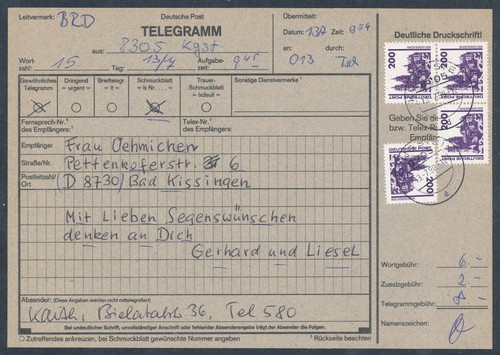 Leitvermerk: BRD
Deutsche Post
TELEGRAMM
aus: 8305 Kgst
Wortzahl: 15 Tag: 13/4 Aufgabezeit: 9 45
Übermittelt:
Datum: 13.4. Zeit: 9 54
an: durch:
013
Deutliche Druckschrift!
Gewöhnliches Telegramm
Dringend = urgent =
Brieftelegr = lt =
Schmuckblatt = lx Nr.
Trauer-Schmuckblatt = lxdeuil =
Sonstige Dienstvermerke ¹
Fernsprech-Nr.¹ des Empfängers:
Telex-Nr.¹ des Empfängers:
Geben Sie die
bzw. Telex-
Empfän
Empfänger Frau Oehmichen
Straße/Nr. Pettenkoferstr. 6
Postleitzahl/Ort (D 8730) Bad Kissingen
Mit Lieben Segenswünschen
denken an Dich
Gerhard und Liesel
Absender: (Diese Angaben werden nicht mittelegrafiert)
Bielatalstr. 36, Tel 580
Bei undeutlicher Schrift, unvollständiger Anschrift oder fehlender Absenderangabe trägt der Absender die Folgen.
Zutreffendes ankreuzen, bei Schmuckblatt gewünschte Nummer angeben
¹ Rückseite beachten
Wortgebühr: 6.-
Zusatzgebühr: 2.-
Telegrammgebühr: 8.-
Namenszeichen:
200
200
200
DEUTSCHE POST